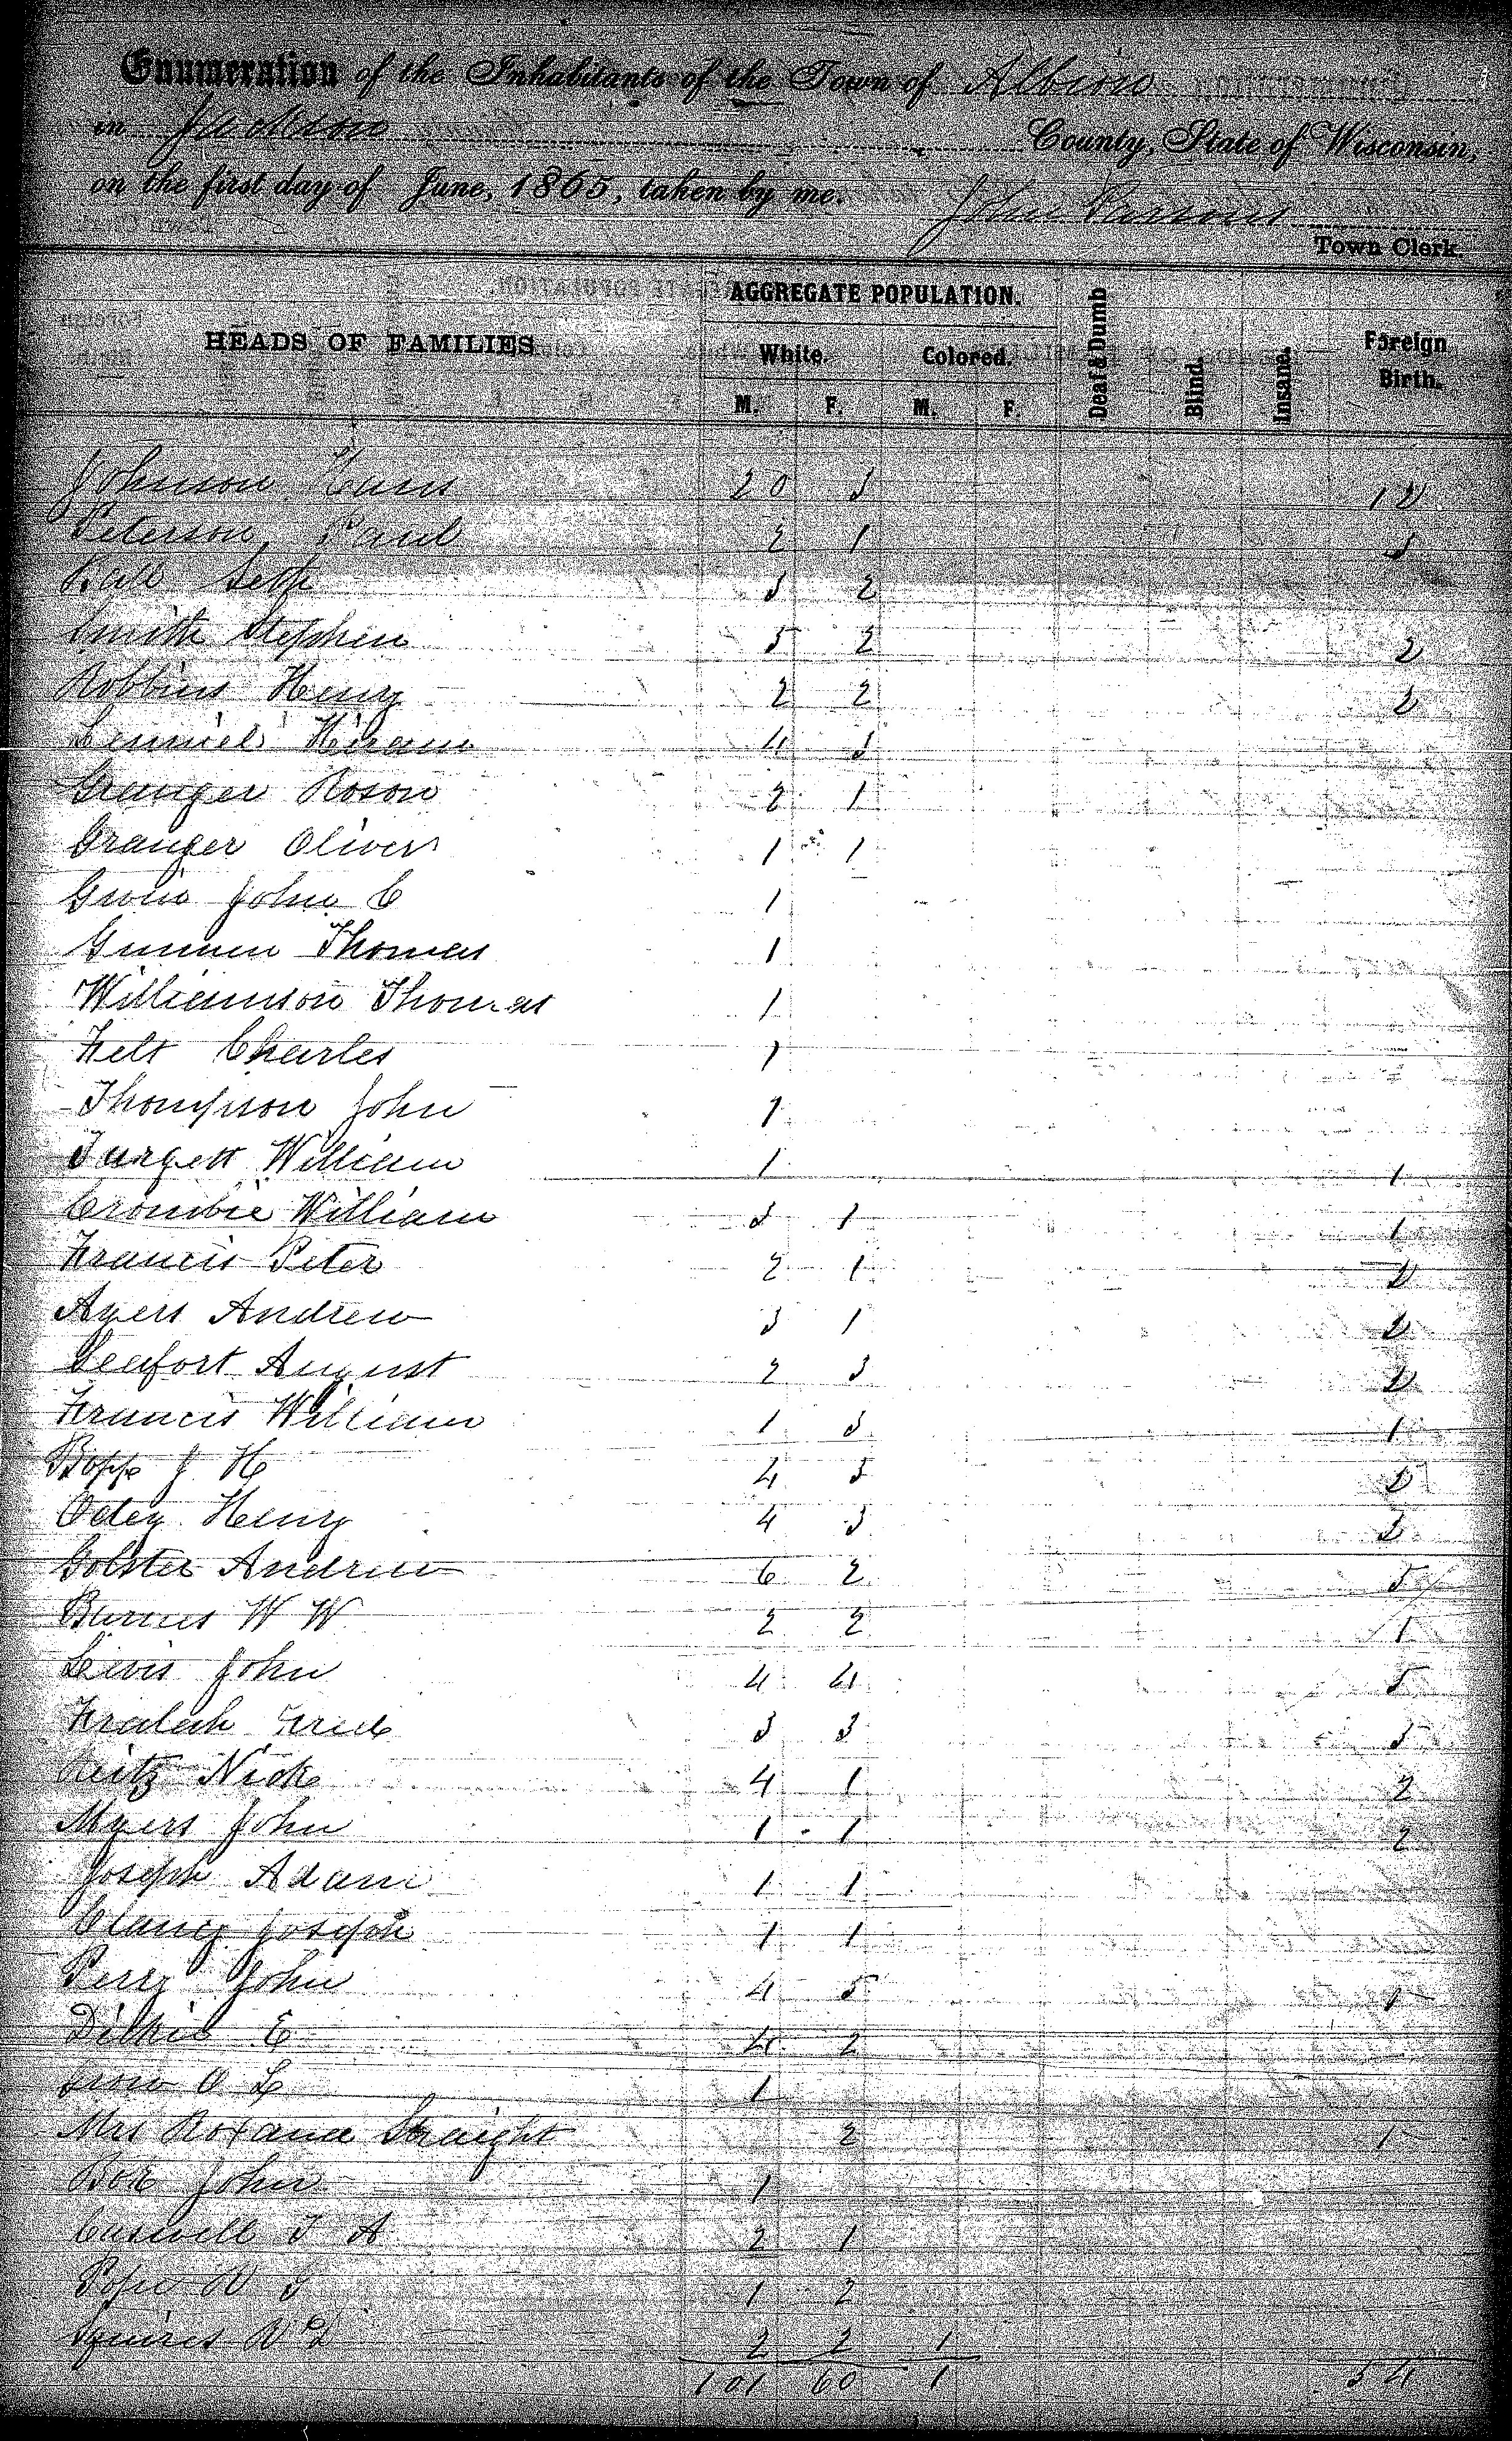 Enumeration of the Inhabitants of the Town of Albion
in Jackson County, State of Wisconsin,
on the first day of June, 1865, taken by me. John Parsons
Town Clerk.
HEADS OF FAMILIES AGGREGATE POPULATION. Deaf & Dumb Blind. Insane. Foreign Birth.
White. Colored.
M. F. M. F.
Johnson Hans 20 3 12
Peterson Paul 2 1 3
Ball Seth 3 2
Smith Stephen 5 2 2
Robbins Henry 2 2 2
Hiram 4 3
Granger Roson 2 1
Granger Oliver 1 1
John C 1
Thomas 1
Williamson Thomas 1
Felt Charles 1
Thompson John 1
Targett William 1 1
Crombie William 3 1 1
Francis Peter 2 1 2
Ayers Andrew 3 1 2
Seafort August 2 3 2
Francis William 1 3 1
Bopp J H 4 5 2
Henry 4 3 3
Golster Andrew 6 2 5
W W 2 2 1
Levis John 4 4 5
Fralich 3 3 3
Reitz Nick 4 1 2
Myers John 1 1 2
Joseph Adam 1 1
Clancy Joseph 1 1
Perry John 4 5 1
E 4 2
O L 1
Mrs Roxana Straight 2 1
John 1
Caswell T A 2 1
Pope 1 2
Squires 2 2 1
101 60 1 54